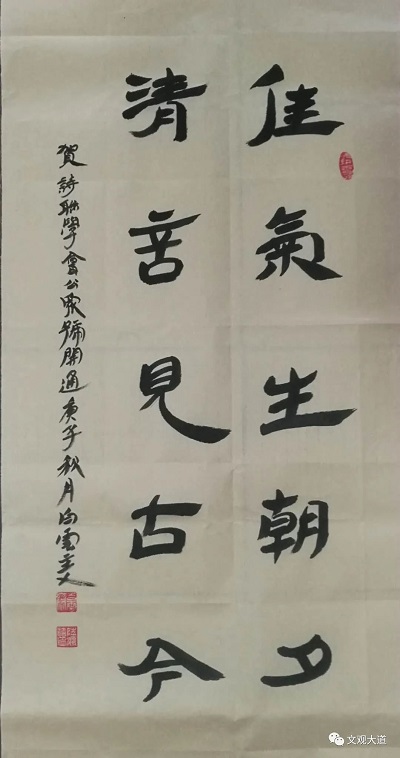 佳氣生朝夕
清言見古今
賀詩聯學會公眾號開通庚子秋月白雲主人
文观大道